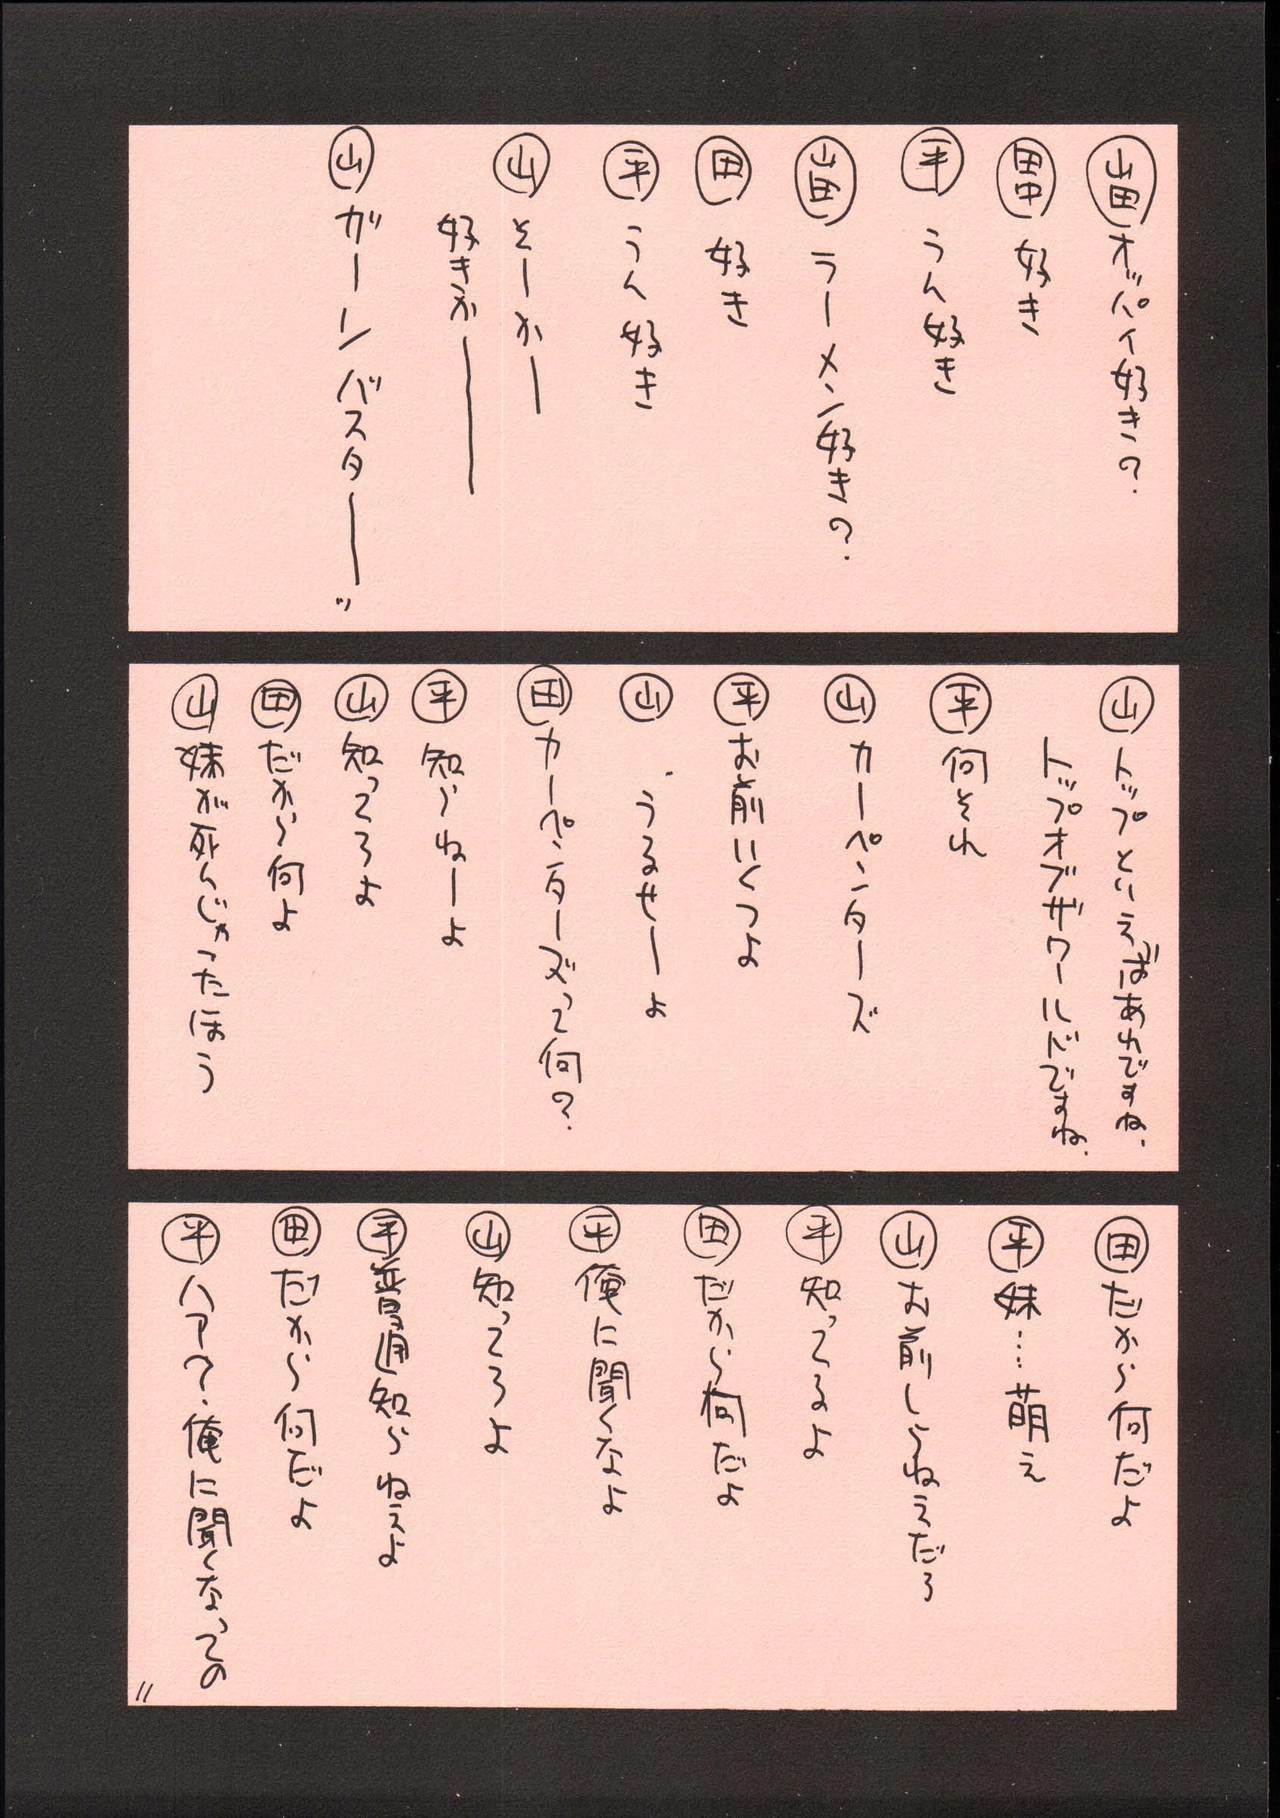 山田 オッパイ好き?
田中 好き
平 うん好き
山田 ラーメン好き?
田 好き
平 うん好き
山 そーかー
好きかー
山 ガーンバスターーッ
山 トップといえばあれですね、
トップオブザワールドですね、
平 何それ
山 カーペンターズ
平 お前いくつよ
山 うるせーよ
田 カーペンターズって何?
平 知らねーよ
山 知ってろよ
田 だから何よ
山 妹が死んじゃったほう
田 だから何だよ
平 妹…萌え
山 お前しらねえだろ
平 知ってるよ
田 だから何だよ
平 俺に聞くなよ
山 知ってろよ
平 普通知らねぇよ
田 だから何だよ
平 ハア?俺に聞くなっての
11